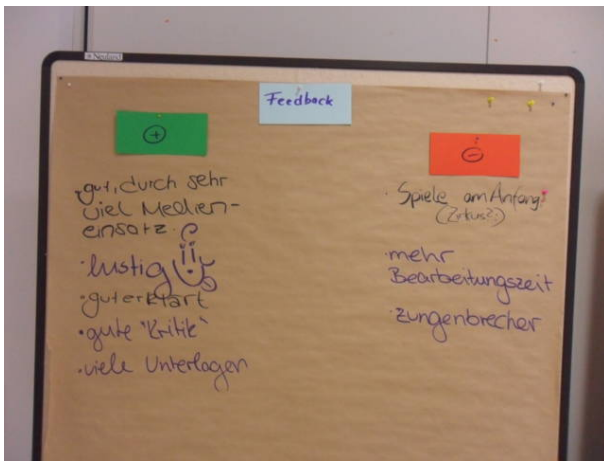 Feedback
+
· gut, durch sehr
viel Medien-
einsatz.
· lustig
· gut erklärt
· gute "Kritik"
· viele Unterlagen
-
· Spiele am Anfang
(Zirkus?)
· mehr
Bearbeitungszeit
· Zungenbrecher